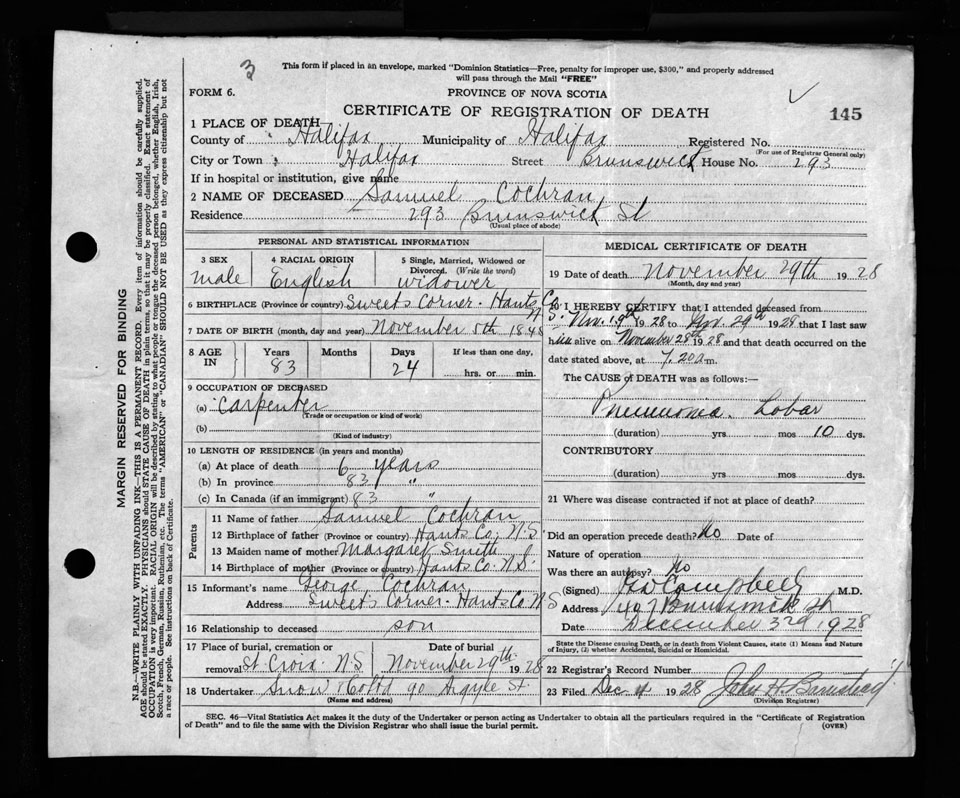 3
This form if placed in an envelope, marked "Dominion Statistics—Free, penalty for improper use, $300," and properly addressed
will pass through the Mail "FREE"
FORM 6.
PROVINCE OF NOVA SCOTIA
CERTIFICATE OF REGISTRATION OF DEATH
145
1 PLACE OF DEATH
County of Halifax Municipality of Halifax Registered No.
(For use of Registrar General only)
City or Town Halifax Street Brunswick House No. 293
If in hospital or institution, give name
2 NAME OF DECEASED Samuel Cochran
Residence 293 Brunswick St
(Usual place of abode)
PERSONAL AND STATISTICAL INFORMATION
3 SEX
male
4 RACIAL ORIGIN
English
5 Single, Married, Widowed or
Divorced. (Write the word)
widower
6 BIRTHPLACE (Province or country) Sweets Corner - Hants Co
N.S.
7 DATE OF BIRTH (month, day and year) November 5th 1845
8 AGE
IN
Years
83
Months
Days
24
If less than one day,
hrs. or min.
9 OCCUPATION OF DECEASED
(a) Carpenter
(Trade or occupation or kind of work)
(b)
(Kind of industry)
10 LENGTH OF RESIDENCE (in years and months)
(a) At place of death 6 years
(b) In province 83 "
(c) In Canada (if an immigrant) 83 "
Parents
11 Name of father Samuel Cochran
12 Birthplace of father (Province or country) Hants Co, N.S.
13 Maiden name of mother Margaret Smith
14 Birthplace of mother (Province or country) Hants Co. N.S.
15 Informant's name George Cochran
Address Sweet's Corner - Hants Co N S
16 Relationship to deceased son
17 Place of burial, cremation or
removal St Croix - N S
Date of burial
November 29th 1928
18 Undertaker Snow & Co Ltd 90 Argyle St.
(Name and address)
MEDICAL CERTIFICATE OF DEATH
19 Date of death November 29th 1928
(Month, day and year)
20 I HEREBY CERTIFY that I attended deceased from
Nov. 19th 1928 to Nov. 29th 1928 that I last saw
him alive on November 28th 1928 and that death occurred on the
date stated above, at 7.20 a.m.
The CAUSE of DEATH was as follows:
Pneumonia. Lobar
(duration) yrs mos 10 dys.
CONTRIBUTORY
(duration) yrs mos dys.
21 Where was disease contracted if not at place of death?
Did an operation precede death? No Date of
Nature of operation
Was there an autopsy? No
(Signed) Campbell M.D.
Address 407 Brunswick St
Date December 3rd 1928
State the Disease causing Death, or in death from Violent Causes, state (1) Means and Nature
of Injury, (2) whether Accidental, Suicidal or Homicidal.
22 Registrar's Record Number
23 Filed Dec 4 1928 John H Barnstead
(Division Registrar)
SEC. 46—Vital Statistics Act makes it the duty of the Undertaker or person acting as Undertaker to obtain all the particulars required in the "Certificate of Registration
of Death" and to file the same with the Division Registrar who shall issue the burial permit.
(OVER)
MARGIN RESERVED FOR BINDING
N.B.—WRITE PLAINLY WITH UNFADING INK—THIS IS A PERMANENT RECORD. Every item of information should be carefully supplied.
AGE should be stated EXACTLY. PHYSICIANS should STATE CAUSE OF DEATH in plain terms, so that it may be properly classified. Exact statement of
OCCUPATION is very important. RACIAL ORIGIN will be described by stating to what people or tongue the deceased person belonged, whether English, Irish,
Scotch, French, German, Russian, Ruthenian, etc. The terms "AMERICAN" or "CANADIAN" SHOULD NOT BE USED as they express citizenship but not
a race or people. See instructions on back of Certificate.